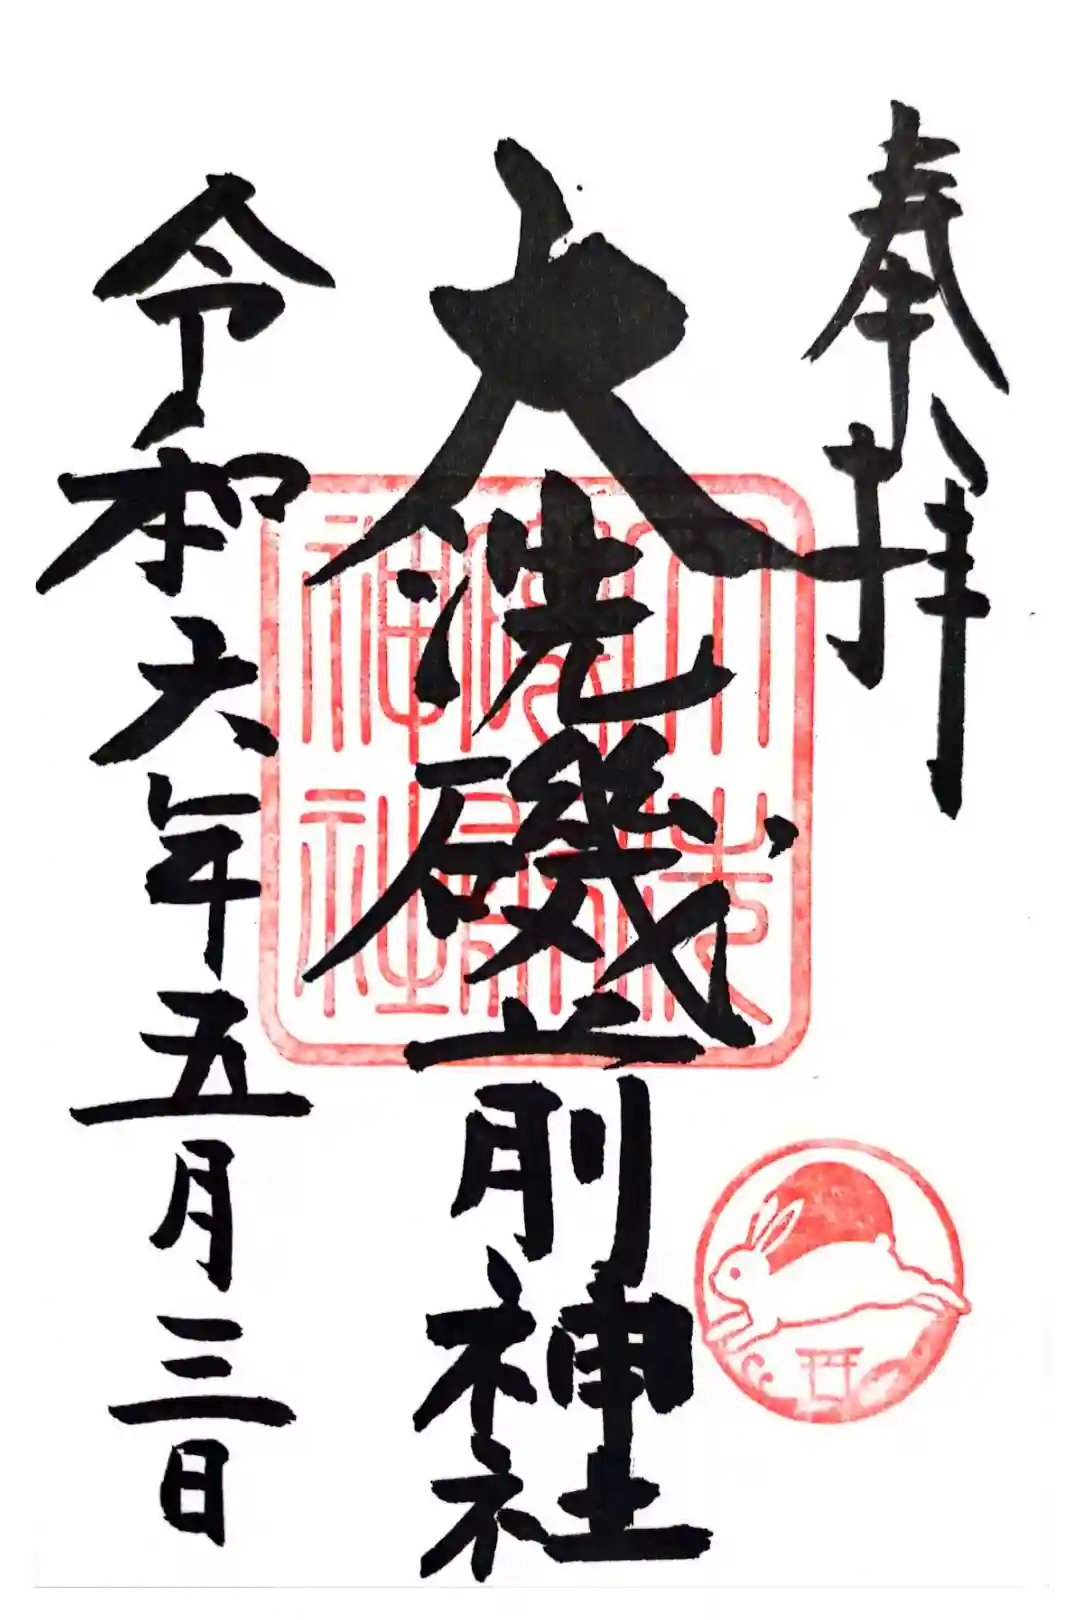 奉拝
大洗磯前神社
令和六年五月三日
大洗
磯前
神社